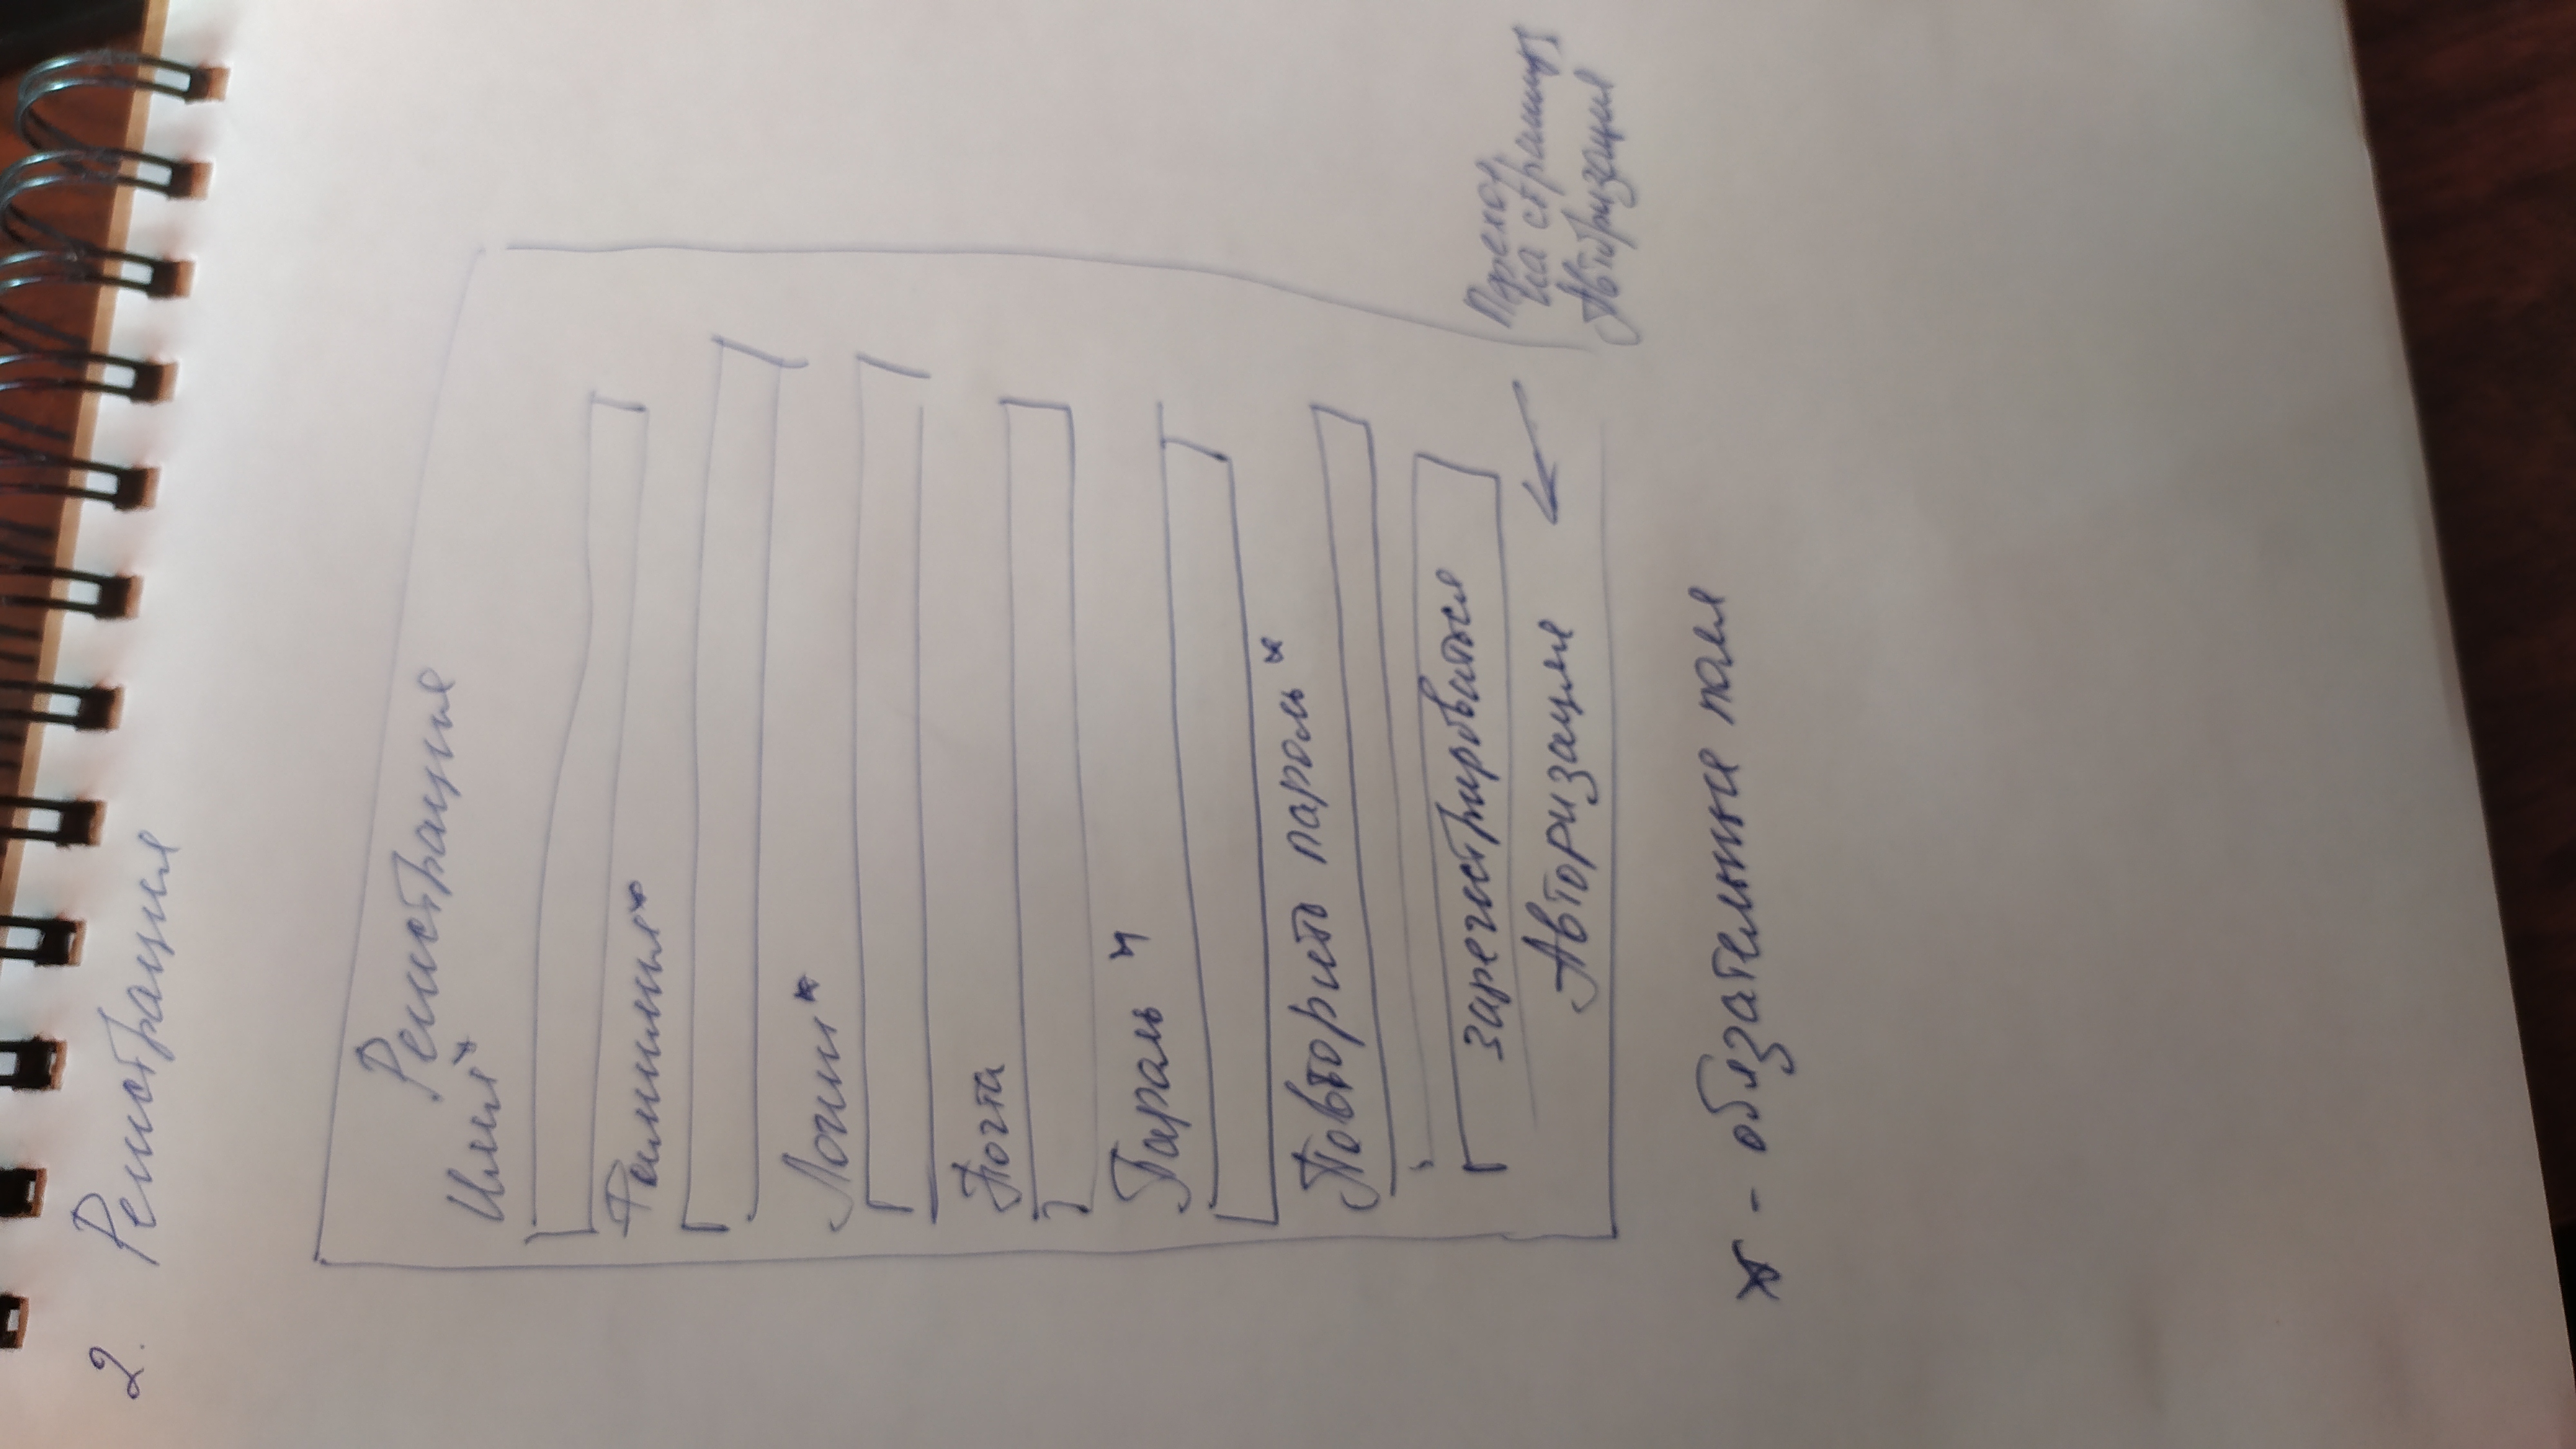 2. Регистрация
Регистрация
Имя*
Фамилия*
Логин*
Почта
Пароль *
Повторить пароль *
зарегистрироваться
Авторизация
Переход
на страницу
Авторизация
* - обязательные поля